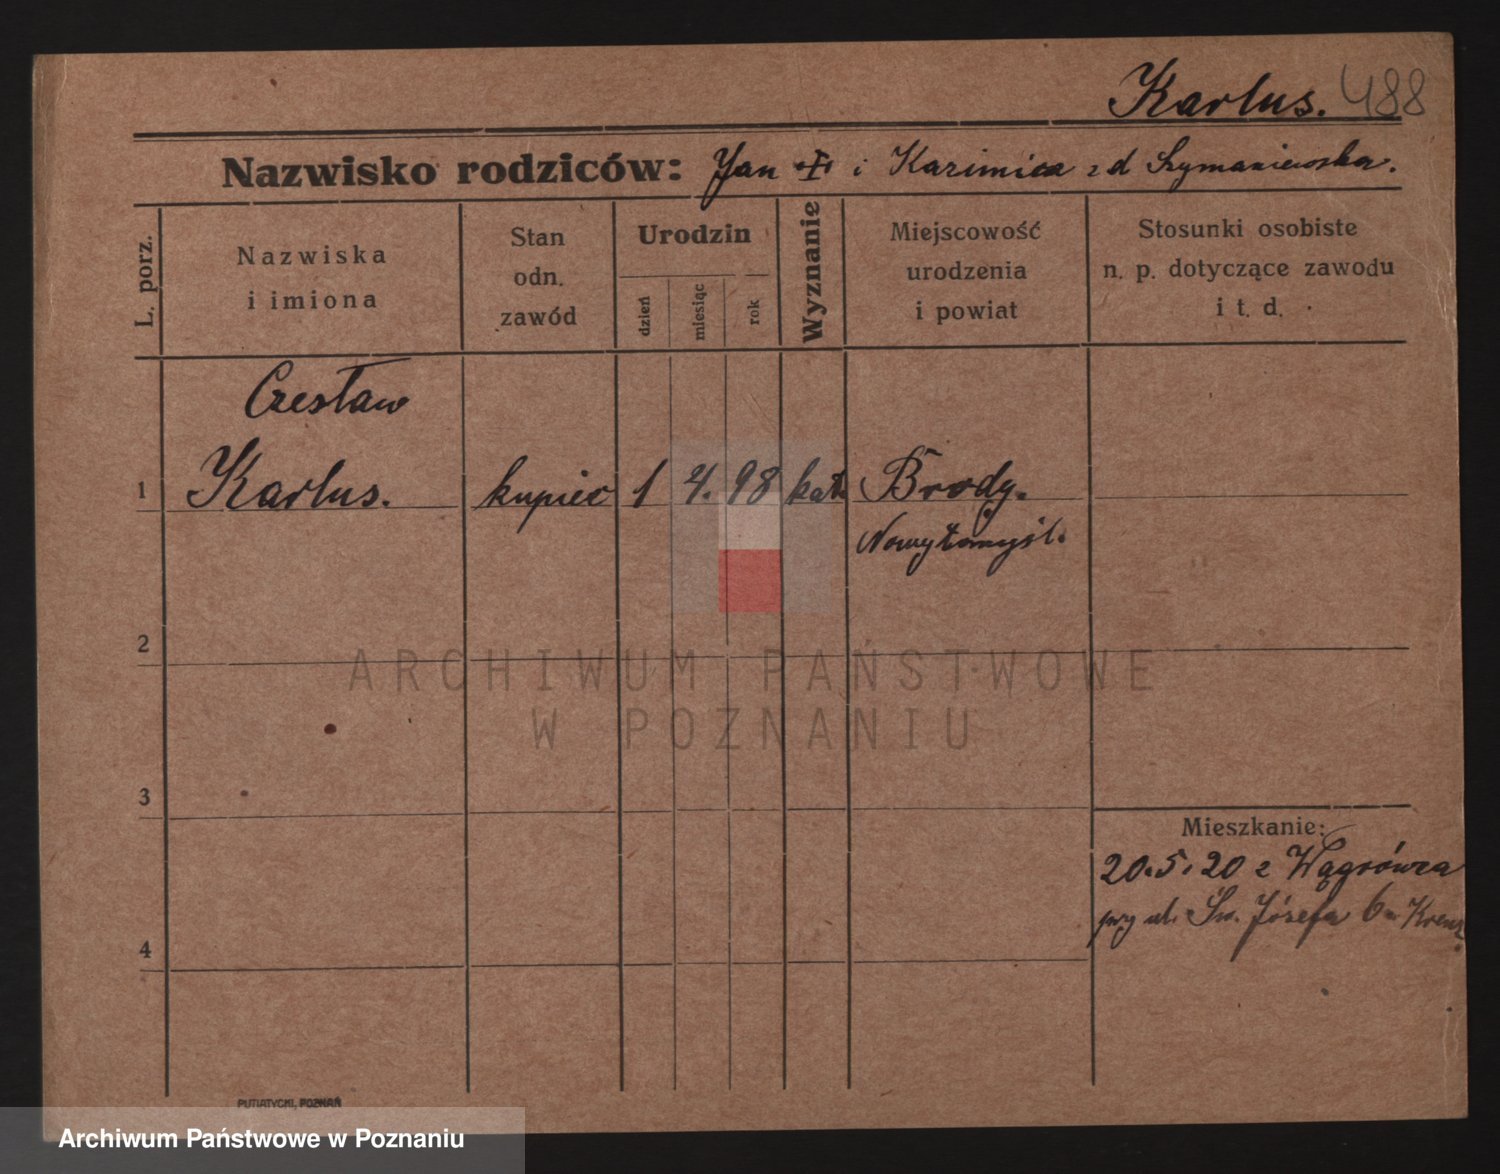 Karlus. 488
Nazwisko rodziców: Jan ✝ i Kazimiea z d Szymaniewska.
L. porz.
Nazwiska
i imiona
Stan
odn.
zawód
Urodzin
dzień
miesiąc
rok
Wyznanie
Miejscowość
urodzenia
i powiat
Stosunki osobiste
n. p. dotyczące zawodu
i t. d.
Czesław
1 Karlus. kupiec 1 4. 98 kat. Brody.
Nowytomyśl.
2
ARCHIWUM PAŃSTWOWE
W POZNANIU
3
Mieszkanie:
20.5.20 z Wągrówca
przy ul. Św. Józefa 6
4
PUTIATYCKI, POZNAŃ
Archiwum Państwowe w Poznaniu